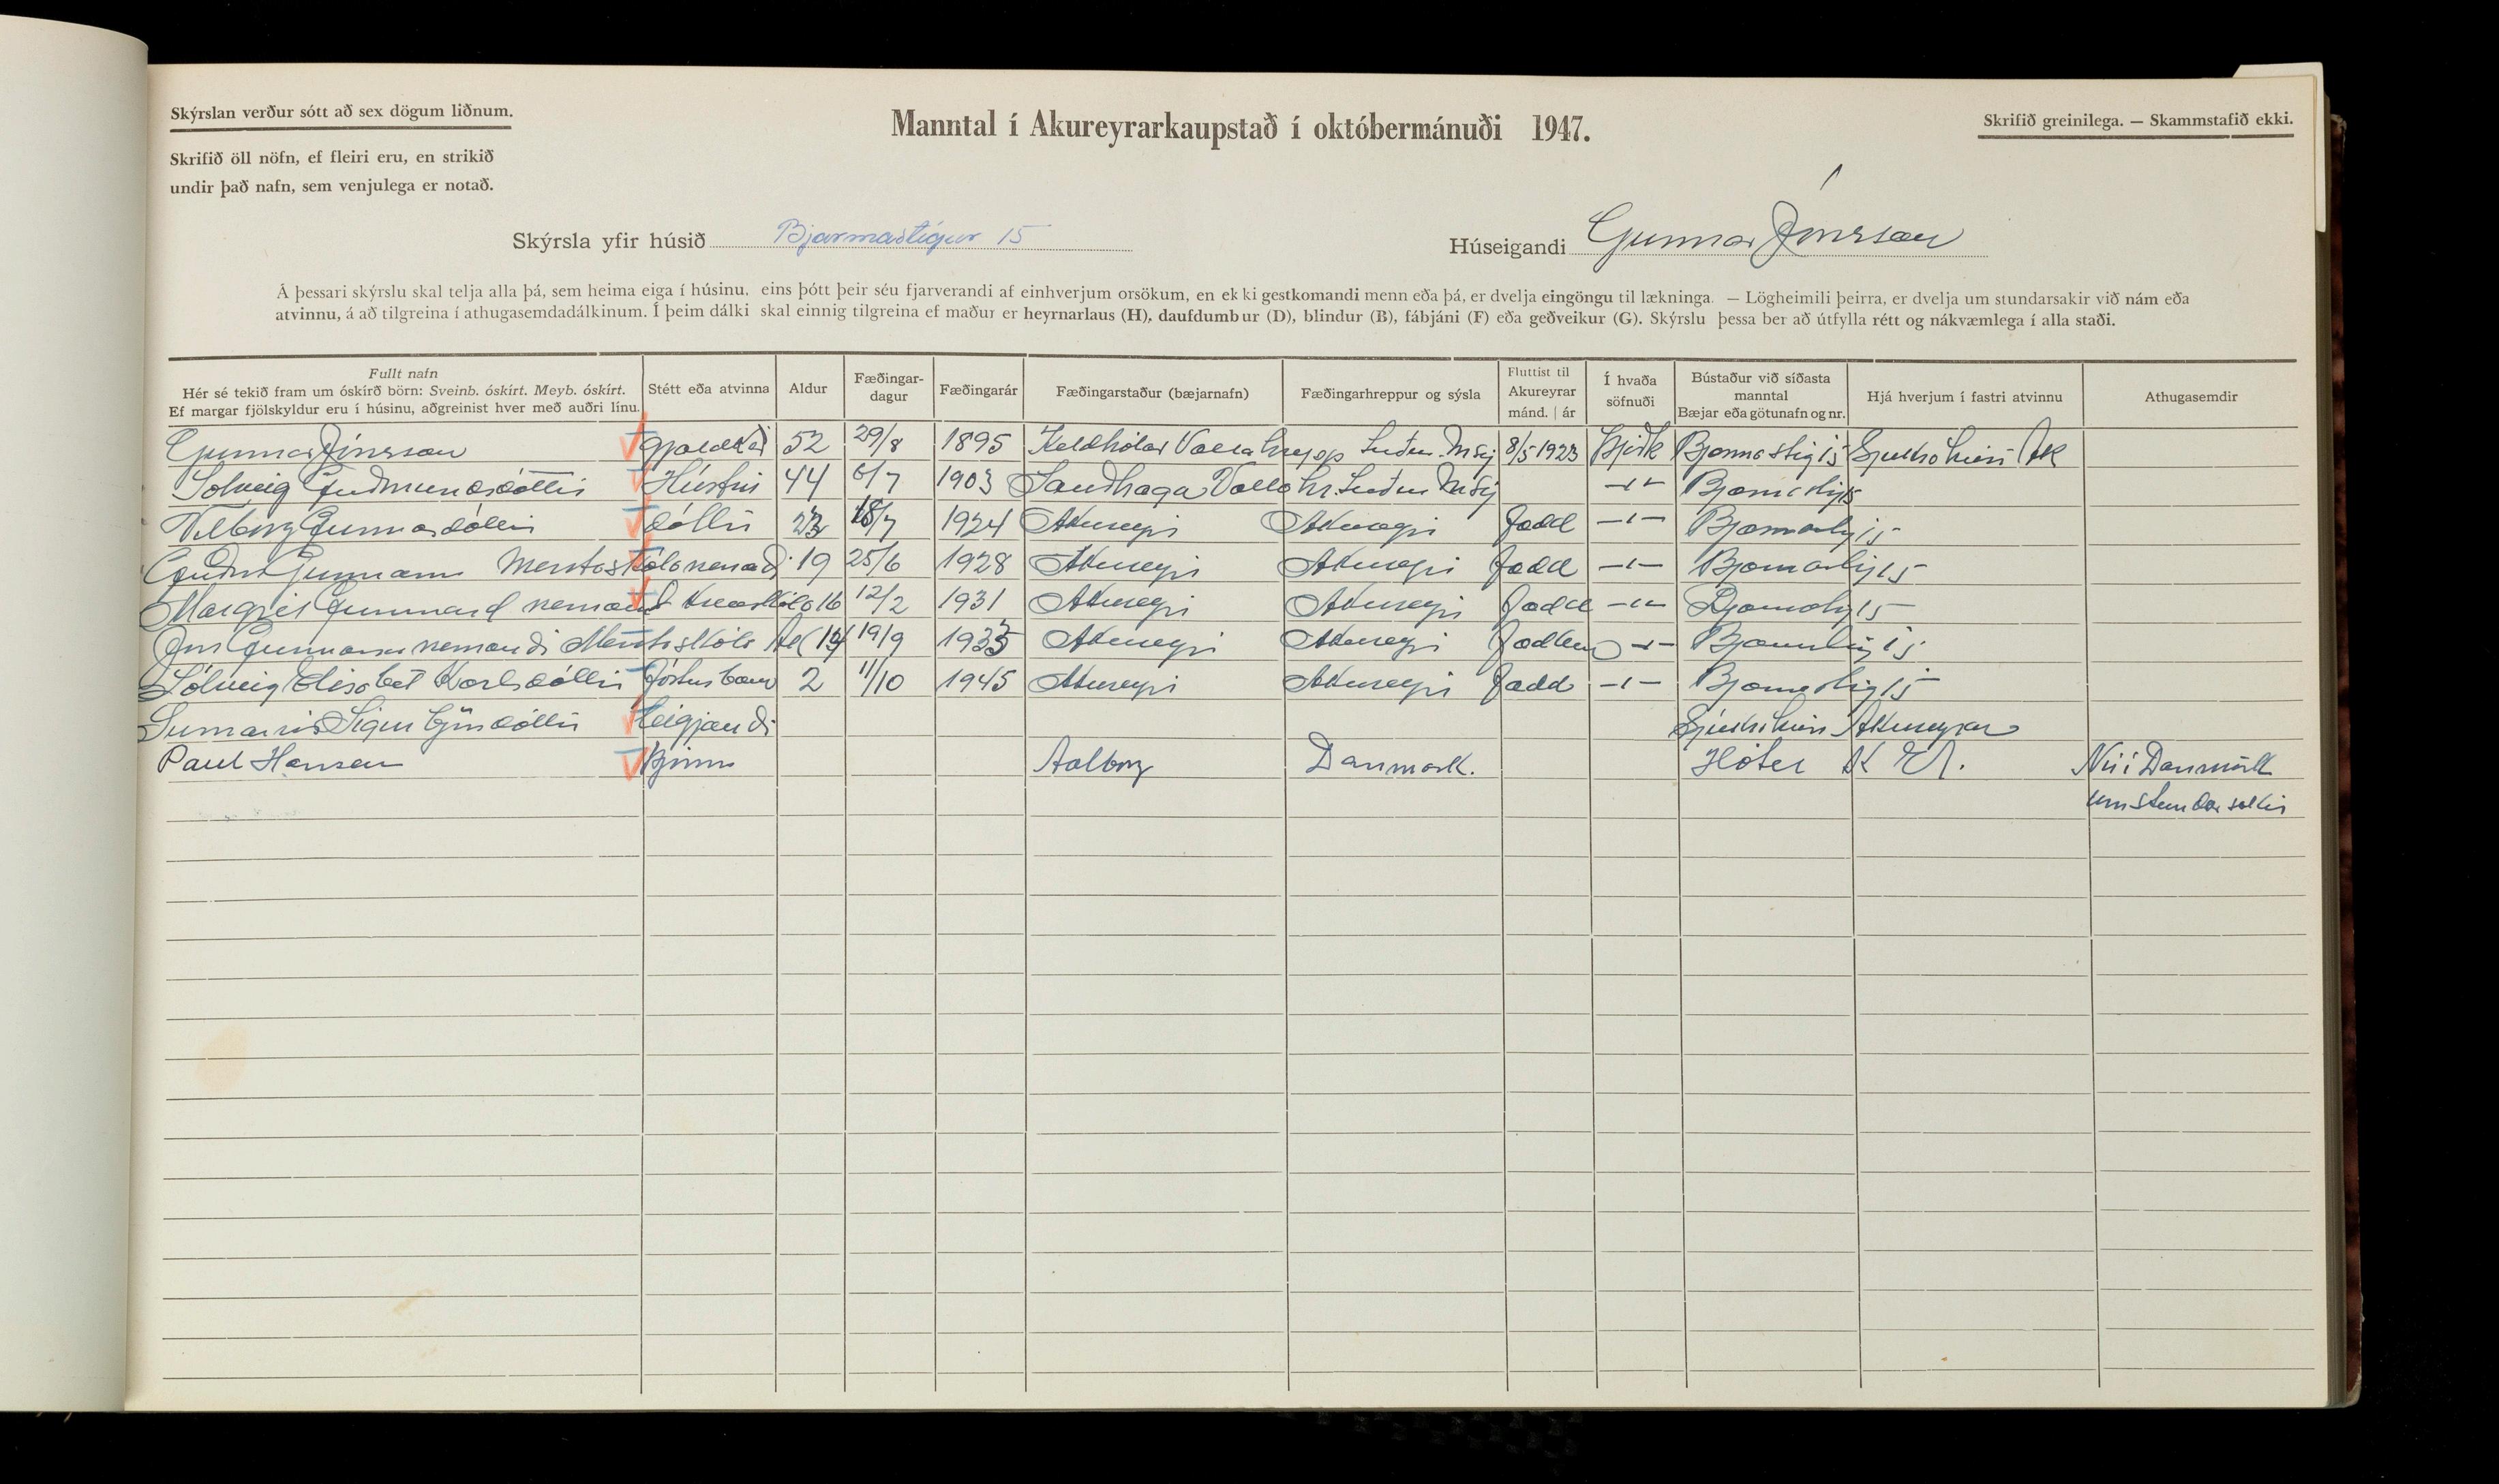 Skýrslan verður sótt að sex dögum liðnum.
Manntal í Akureyrarkaupstað í októbermánuði 1947.
Skrifið greinilega. — Skammstafið ekki.
Skrifið öll nöfn, ef fleiri eru, en strikið
undir það nafn, sem venjulega er notað.
Skýrsla yfir húsið Bjarmastígur 15
Húseigandi Gunnar Jónsson
Á þessari skýrslu skal telja alla þá, sem heima eiga í húsinu, eins þótt þeir séu fjarverandi af einhverjum orsökum, en ekki gestkomandi menn eða þá, er dvelja eingöngu til lækninga. — Lögheimili þeirra, er dvelja um stundarsakir við nám eða
atvinnu, á að tilgreina í athugasemdadálkinum. Í þeim dálki skal einnig tilgreina ef maður er heyrnarlaus (H), daufdumbur (D), blindur (B), fábjáni (F) eða geðveikur (G). Skýrslu þessa ber að útfylla rétt og nákvæmlega í alla staði.
Fullt nafn Hér sé tekið fram um óskírð börn: Sveinb. óskírt. Meyb. óskírt. Ef margar fjölskyldur eru í húsinu, aðgreinist hver með auðri línu. Stétt eða atvinna Aldur Fæðingar-dagur Fæðingarár Fæðingarstaður (bæjarnafn) Fæðingarhreppur og sýsla Fluttist til Akureyrar mánd. | ár Í hvaða söfnuði Bústaður við síðasta manntal Bæjar eða götunafn og nr. Hjá hverjum í fastri atvinnu Athugasemdir
Gunnar Jónsson 52 29/8 1895 Keldhólar Vallahrepp Suður Múlsýs 8/5 1923 Þjóðk Bjarmastíg 15 Sjúkrahúsi Ak
Sólveig Guðmundsdóttir Húsfrú 44 6/7 1903 Sandhaga Valla hr. Suður Múlsýs -"- Bjarmastíg 15
Vilborg Gunnarsdóttir dóttir 23 1924 Akureyri Akureyri fædd -"- Bjarmastíg 15
Gunnarsson Menntaskólanemandi 19 25/6 1928 Akureyri Akureyri fædd -"- Bjarmastíg 15
Margrét Gunnarsd nemandi 16 12/2 1931 Akureyri Akureyri fædd -"- Bjarmastíg 15
Jón Gunnarsson nemandi Menntaskóla Ak 14 19/9 1933 Akureyri Akureyri fæddur -"- Bjarmastíg 15
Sólveig Elísabet Karlsdóttir fósturbarn 2 11/10 1945 Akureyri Akureyri fædd -"- Bjarmastíg 15
Sumarrós Sigurbjörnsdóttir leigjandi Sjúkrahúsi Akureyrar
Paul Hansen Aalborg Danmark. Hótel K E A. Nú í Danmörk
um stundarsakir